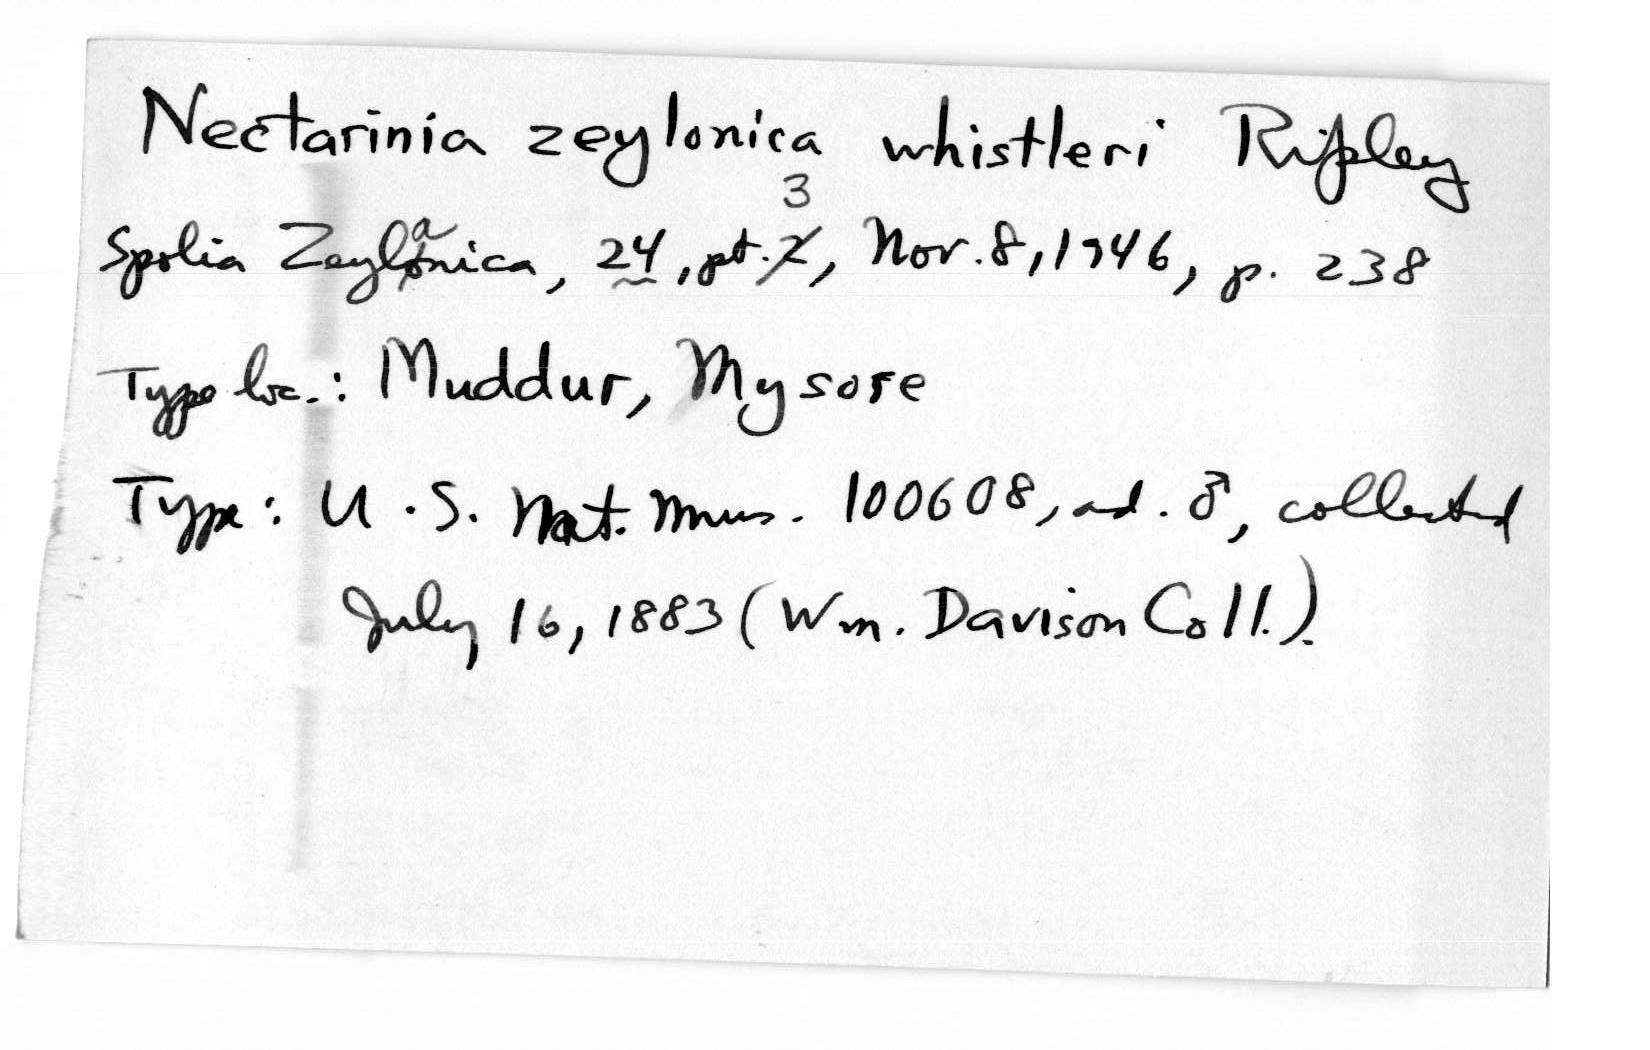 Nectarinia zeylonica whistleri Ripley
Spolia Zeylanica, 24, pt. 3, Nov. 8, 1946, p. 238
Type loc.: Muddur, Mysore
Type: U.S. Nat. Mus. 100608, ad. ♂, collected
July 16, 1883 (Wm. Davison Coll.).